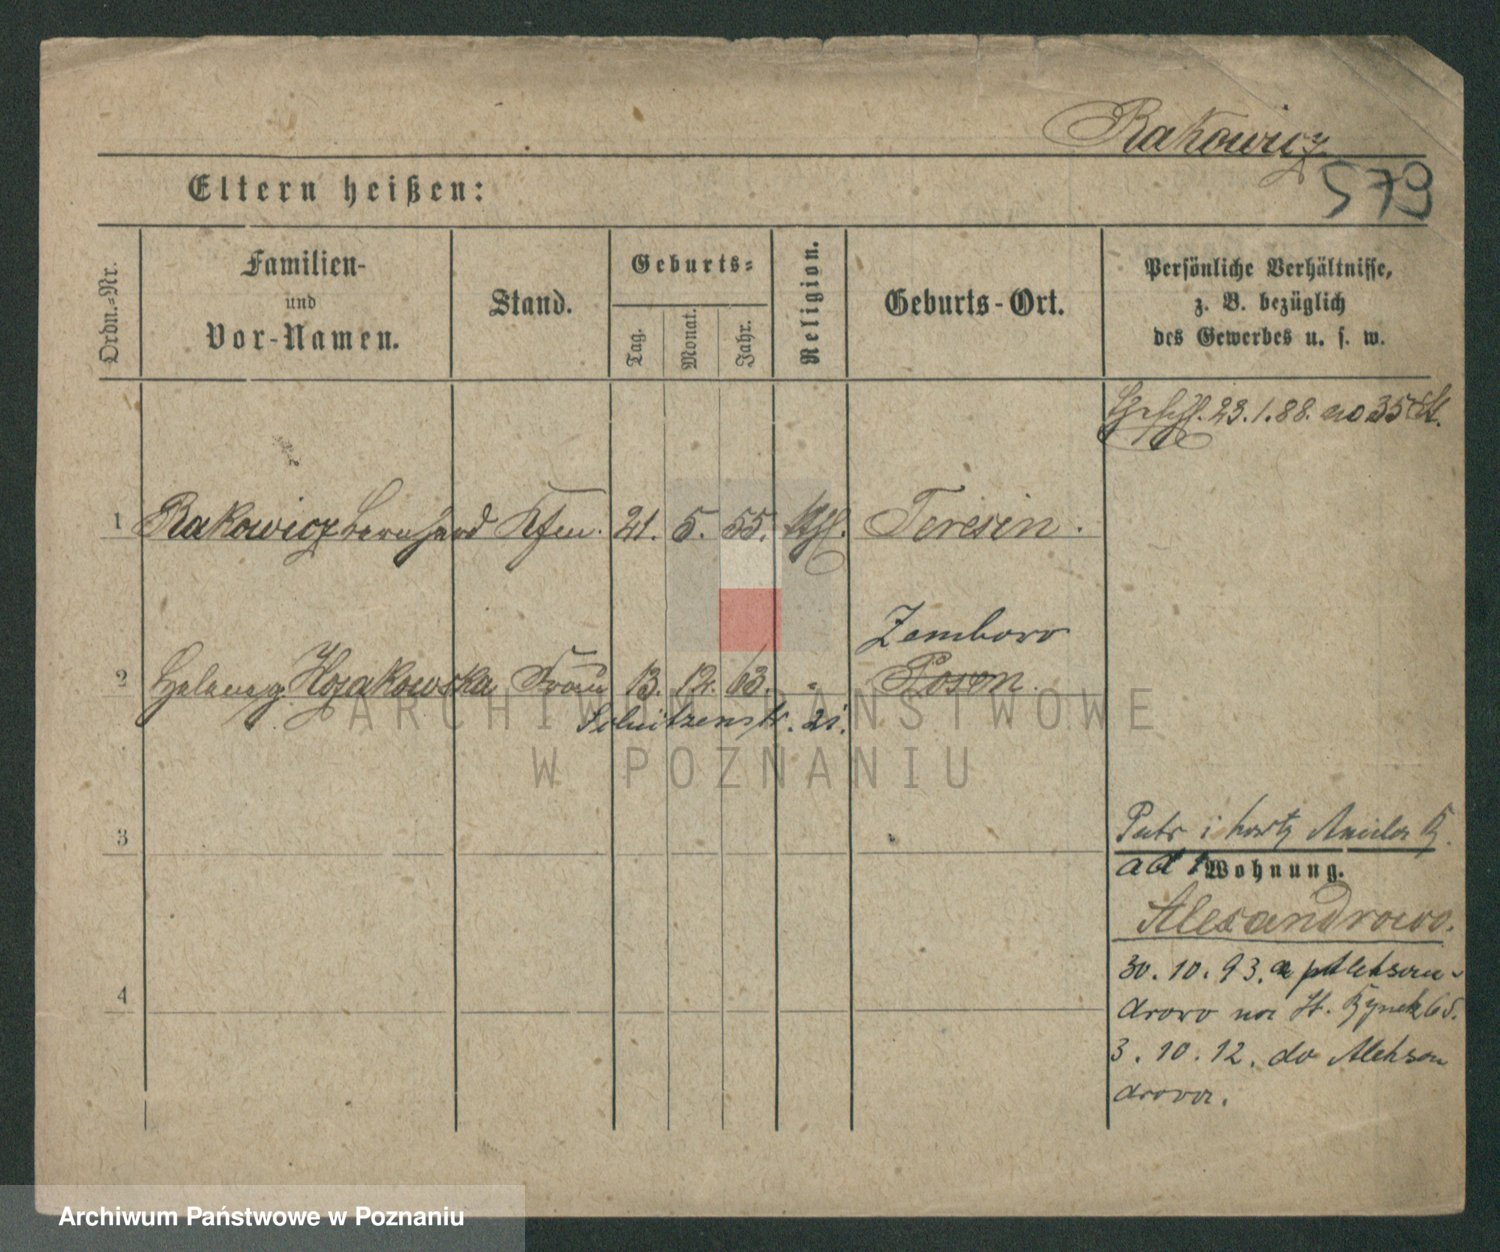 Rakowicz
579
Eltern heißen:
Ordn.-Nr.
Familien-
und
Vor-Namen.
Stand.
Geburts-
Tag.
Monat.
Jahr.
Religion.
Geburts-Ort.
Persönliche Verhältnisse,
z. B. bezüglich
des Gewerbes u. s. w.
23.1.88. no 35
1 Rakowicz Bernhard Kfm. 21. 5. 55. Kthl. Teresin.
Zemboro
2 Helene g. Frau 13. 12. 63. " Posen.
Schützenstr. 21.
3
Patr i Aniela R.
ad 1 Wohnung.
Alexandrowo.
30.10.93. Aleksan-
drowo na St. Rynek 65.
3.10.12. do Aleksan
drowa.
4
ARCHIWUM PAŃSTWOWE
W POZNANIU
Archiwum Państwowe w Poznaniu